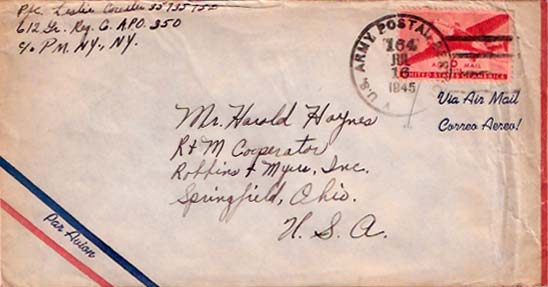 Pfc. Leslie
612 Gr. Reg. Co. A.P.O. 350
c/o P.M. N.Y., N.Y.
U.S. ARMY POSTAL
164
JUL
16
1945
AIR MAIL
UNITED STATES OF AMERICA
Via Air Mail
Correo Aereo!
Mr. Harold Haynes
R + M Cooperator
Robbins + Myers, Inc.
Springfield, Ohio.
U. S. A.
Par Avion